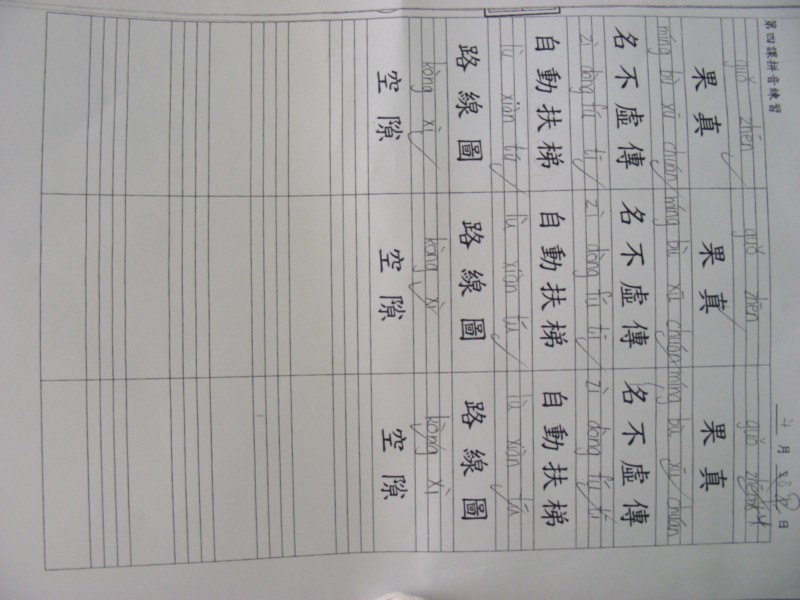 第四課拼音練習
4月 日
guǒ zhēn guǒ zhēn guǒ zhēn
果真 果真 果真
míng bù xū chuán míng bù xū chuán míng bù xū chuán
名不虛傳 名不虛傳 名不虛傳
zì dòng fú tī zì dòng fú tī zì dòng fú tī
自動扶梯 自動扶梯 自動扶梯
lù xiàn tú lù xiàn tú lù xiàn tú
路線圖 路線圖 路線圖
kòng xì kòng xì kòng xì
空隙 空隙 空隙